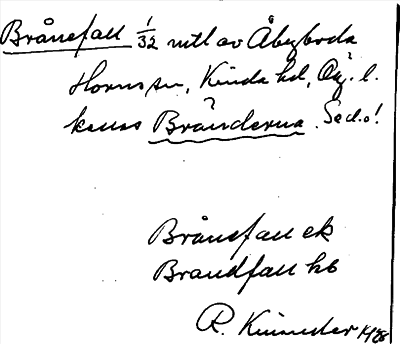 Brånefall 1/32 mtl av Åbyboda
Horns sn, Kinda hd, Ög. l.
kallas Bränderna. Se d.o!
Brånefall ek
Brandfall hb
R. Kinnander